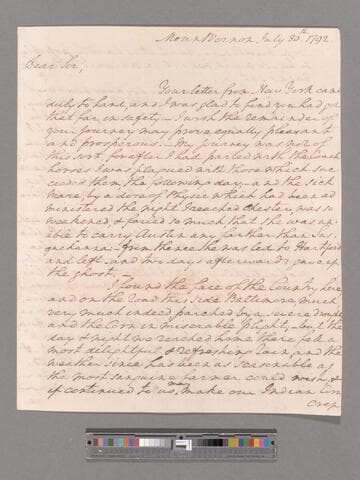 Mount Vernon July 30th 1792
Dear Sir,
Your letter from New York came
duly to hand, and I was glad to find you had got
that far in safety. I wish the remainder of
your journey may prove equally pleasant
and prosperous. My journey was not of
this sort, for after I had parted with the
horses I was plagued with those which suc
ceeded them, the following day and the sick
Mare, by a dose of Physic which had been ad
ministered the night I reached Chester, was so
weakened, & failed so much that she was un
able to carry Austin any farther than Sus
quehanna. From thence she was led to Hartford
and left and two days afterwards gave up
the ghost.
I found the face of the Country here
and on the Road this side Baltimore much
very much indeed parched by a severe drought
and the Corn in miserable plight, but the
day & night we reached home there fell a
most delightful & refreshing Rain and the
weather since has been as seasonable as
the most sanguine farmer could wish, &
if continued to us may make our Indian Corn
Crop